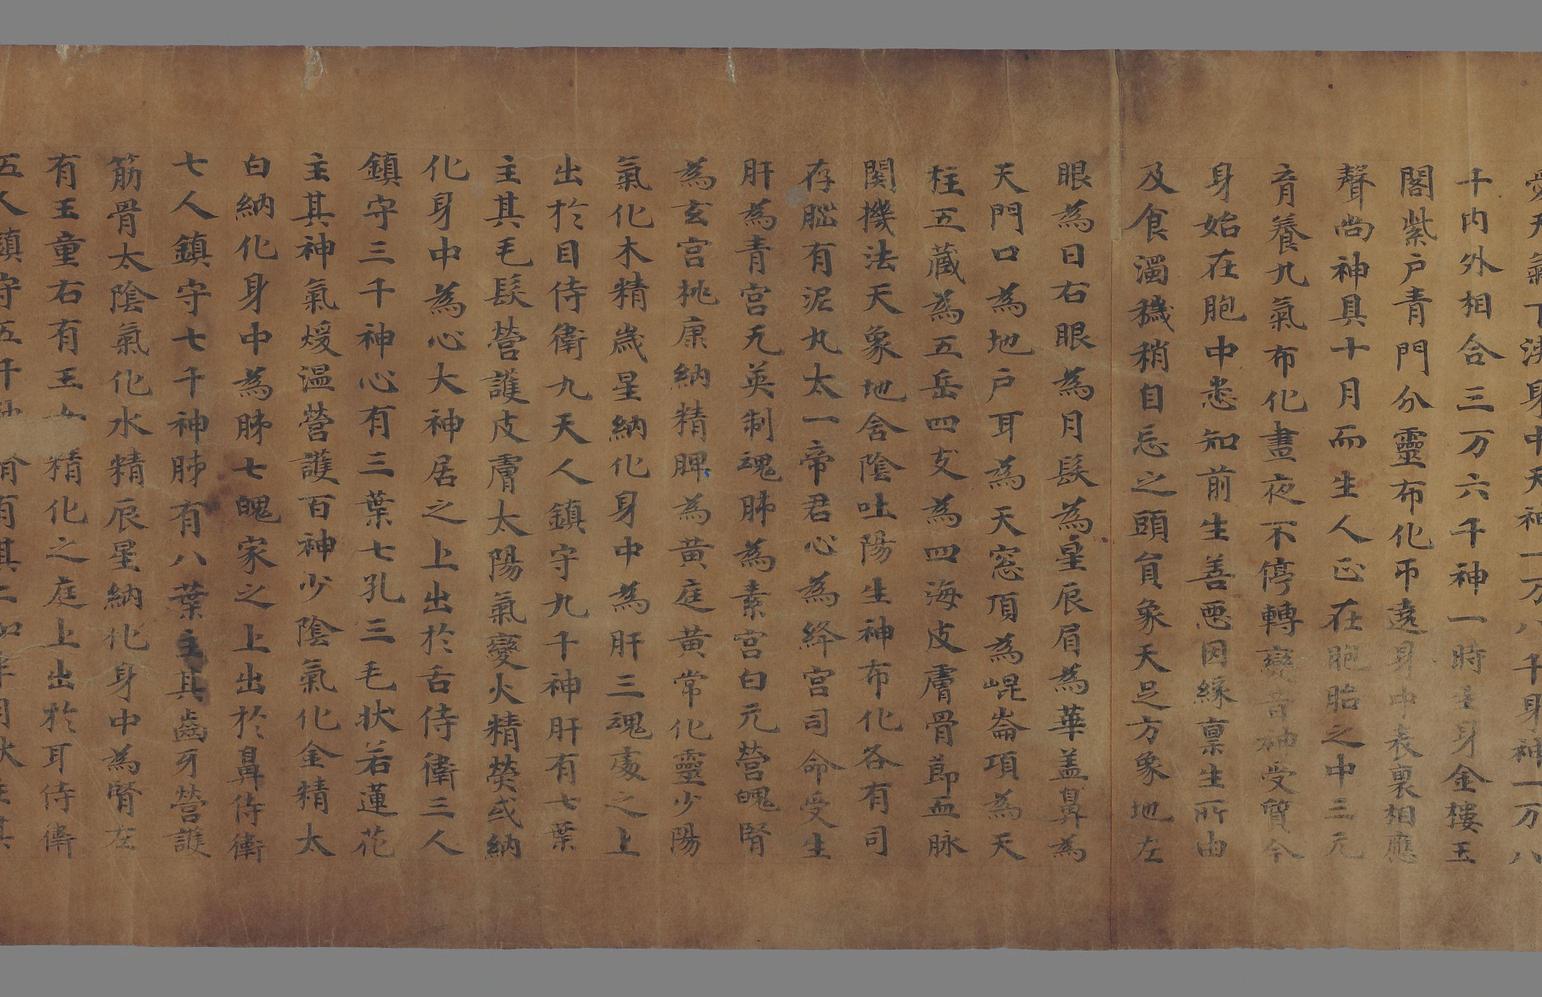 愛死氣下流身中天神一万八千身神一万八
千内外相合三万六千神一時主身金樓玉
閣紫户青門分靈布化帀遶身中表裏相應
聲尚神具十月而生人正在胞胎之中三元
育養九氣布化晝夜不停轉變音神受質今
身始在胞中悉知前生善惡因縁禀生所由
及食濁穢稍自忘之頭貟象天足方象地左
眼為日右眼為月髮為星辰眉為華盖鼻為
天門口為地户耳為天窓頂為崐崙項為天
柱五藏為五岳四支為四海皮膚骨節血脉
関機法天象地含陰吐陽生神布化各有司
存腦有泥丸太一帝君心為絳宫司命受生
肝為青宫无英制魂肺為素宫白元營魄腎
為玄宫桃康納精脾為黄庭黄常化靈少陽
氣化木精嵗星納化身中為肝三魂處之上
出於目侍衛九天人鎮守九千神肝有七葉
主其毛髮營護皮膚太陽氣變火精熒或納
化身中為心大神居之上出於舌侍衛三人
鎮守三千神心有三葉七孔三毛状若蓮花
主其神氣煖温營護百神少陰氣化金精太
白納化身中為肺七魄家之上出於鼻侍衛
七人鎮守七千神肺有八葉主其齒牙營護
筋骨太陰氣化水精辰星納化身中為腎左
有玉童右有玉女精化之庭上出於耳侍衛
五人鎮守五千神腎有其二如半月状主其